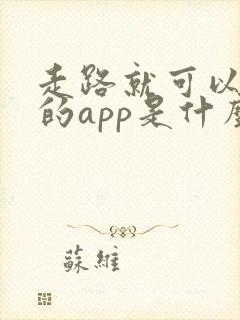 走路就可以
的app是什麼
蘇維